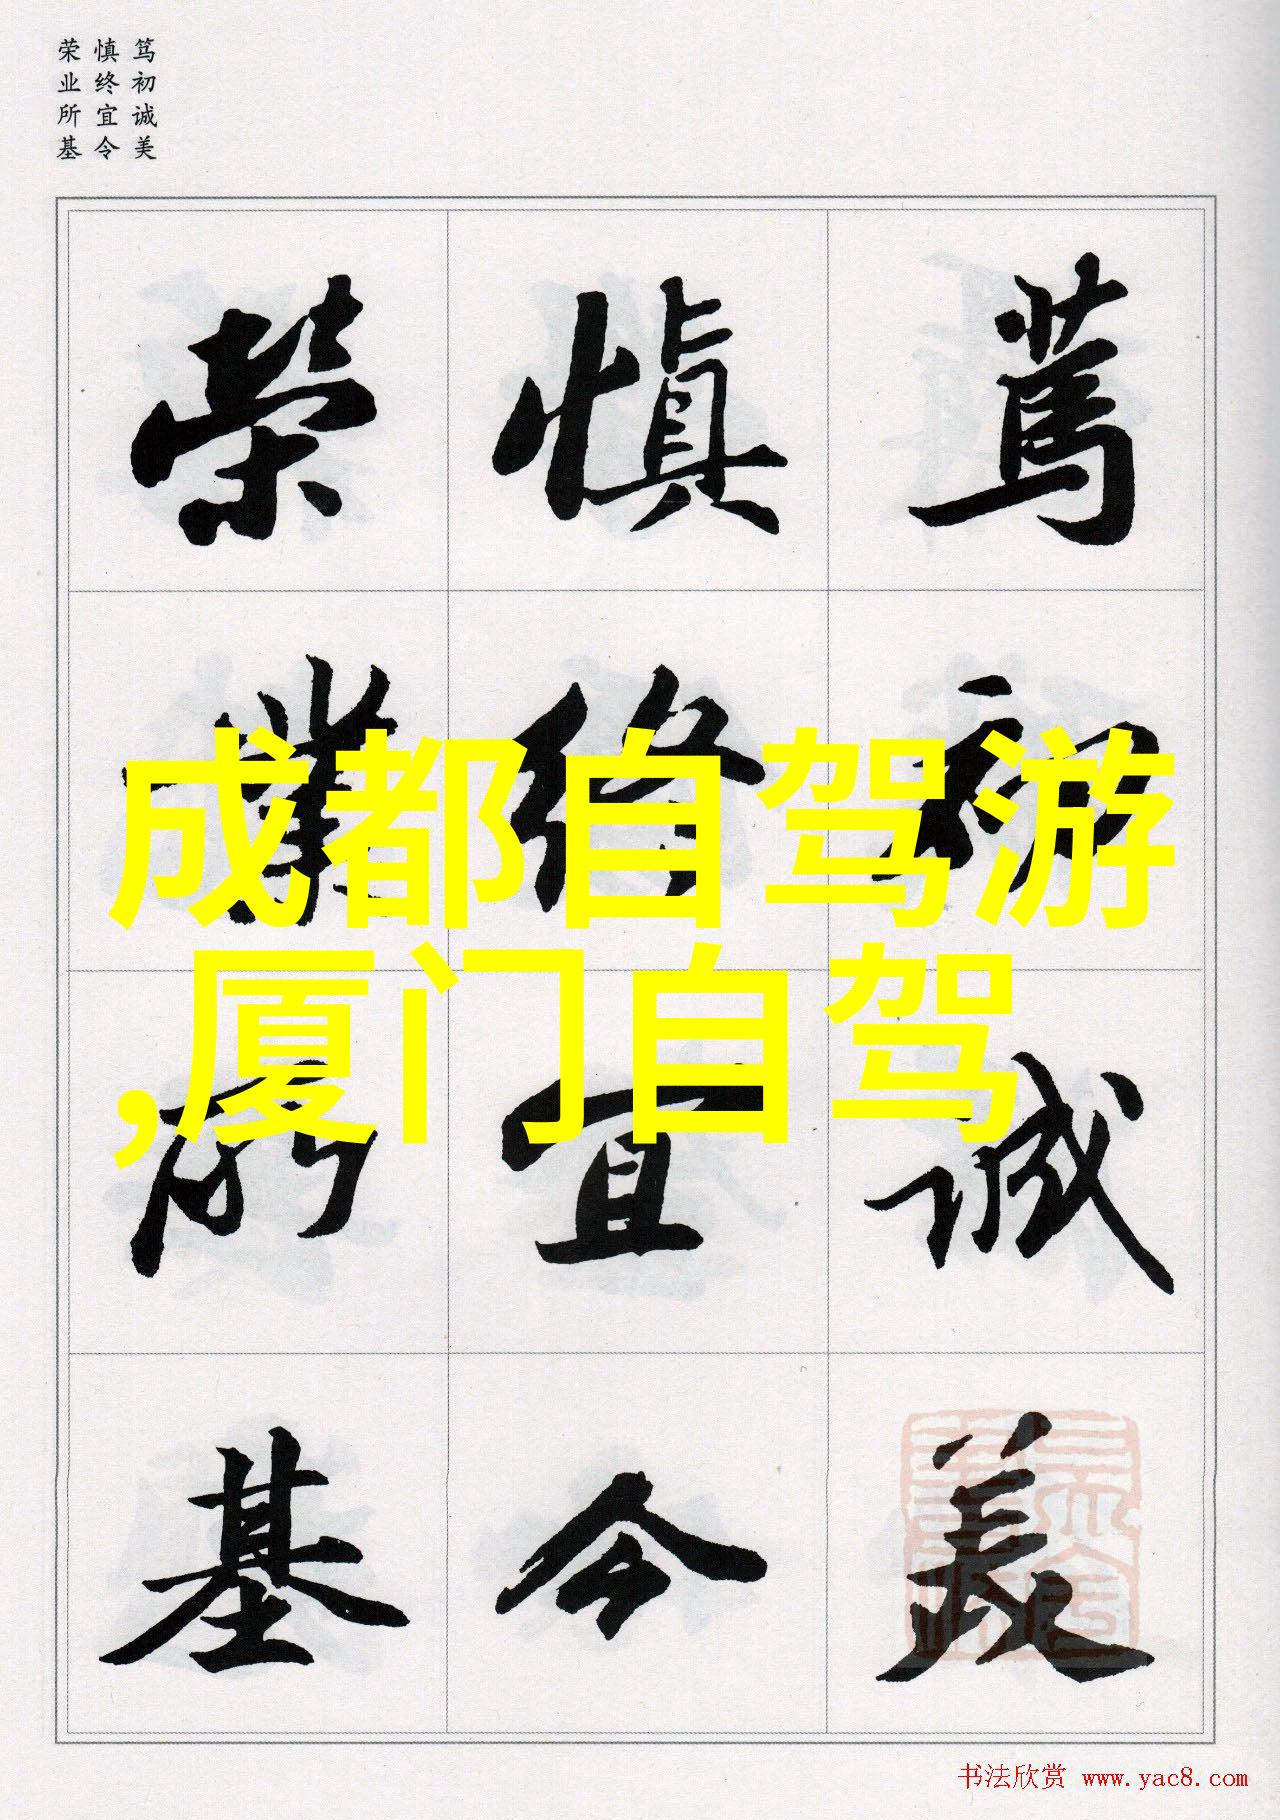 笃初诚美
慎终宜令
荣业所基
篤初誠美
慎終宜令
榮業所基
成都自驾游
,厦门自驾
书法欣赏 www.yac8.com